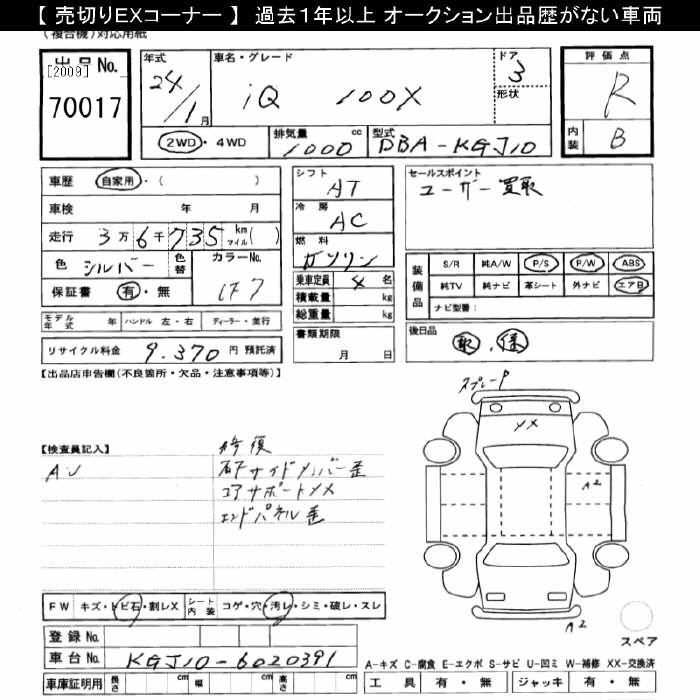 【 売切りEXコーナー 】 過去1年以上 オークション出品歴がない車両
(複合機)対応用紙
出品No.
[2009]
70017
年式
24/1月
車名・グレード
iQ 100X
ドア
3
形状
評価点
R
内装
B
2WD・4WD
排気量
1000cc
型式
DBA-KGJ10
車歴
自家用・( )
車検 年 月
走行 3万6千735 km マイル( )
色 シルバー 色替 カラーNo. 1F7
保証書 有・無
モデル年式 年 ハンドル 左・右 ディーラー・並行
リサイクル料金 9.370円 預託済
シフト
AT
冷房
AC
燃料
ガソリン
乗車定員 4名
積載量 kg
総重量 kg
書類期限
月 日
セールスポイント
ユーザー買取
装備品
S/R 純A/W P/S P/W ABS
純TV 純ナビ 革シート 外ナビ エアB
ナビ型番:
後日品
取.保
【出品店申告欄(不良箇所・欠品・注意事項等)】
【検査員記入】
AU
修復
右Fサイドメンバー歪
コアサポートXX
エンドパネル歪
スプレーP
XX
A2
A2
FW キズ・トビ石・割レX シート内装 コゲ・穴・汚レ・シミ・破レ・スレ
登録No.
車台No. KGJ10-6020391
車庫証明用 長さ cm 幅 cm 高さ cm
スペア
A-キズ C-腐食 E-エクボ S-サビ U-凹ミ W-補修 XX-交換済
工具 有・無 ジャッキ 有・無